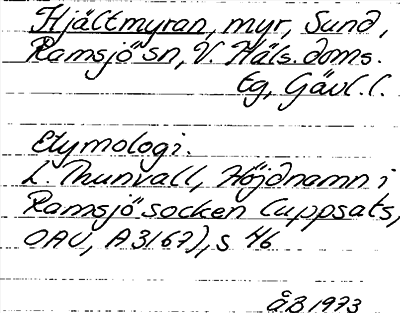 Hjältmyran, myr, Sund,
Ramsjö sn, V. Häls. doms.
Eg, Gävl. l.
Etymologi.
L. Thunvall, Höjdnamn i
Ramsjö socken (uppsats,
OAU, A3167), s 46
ÅB 1973